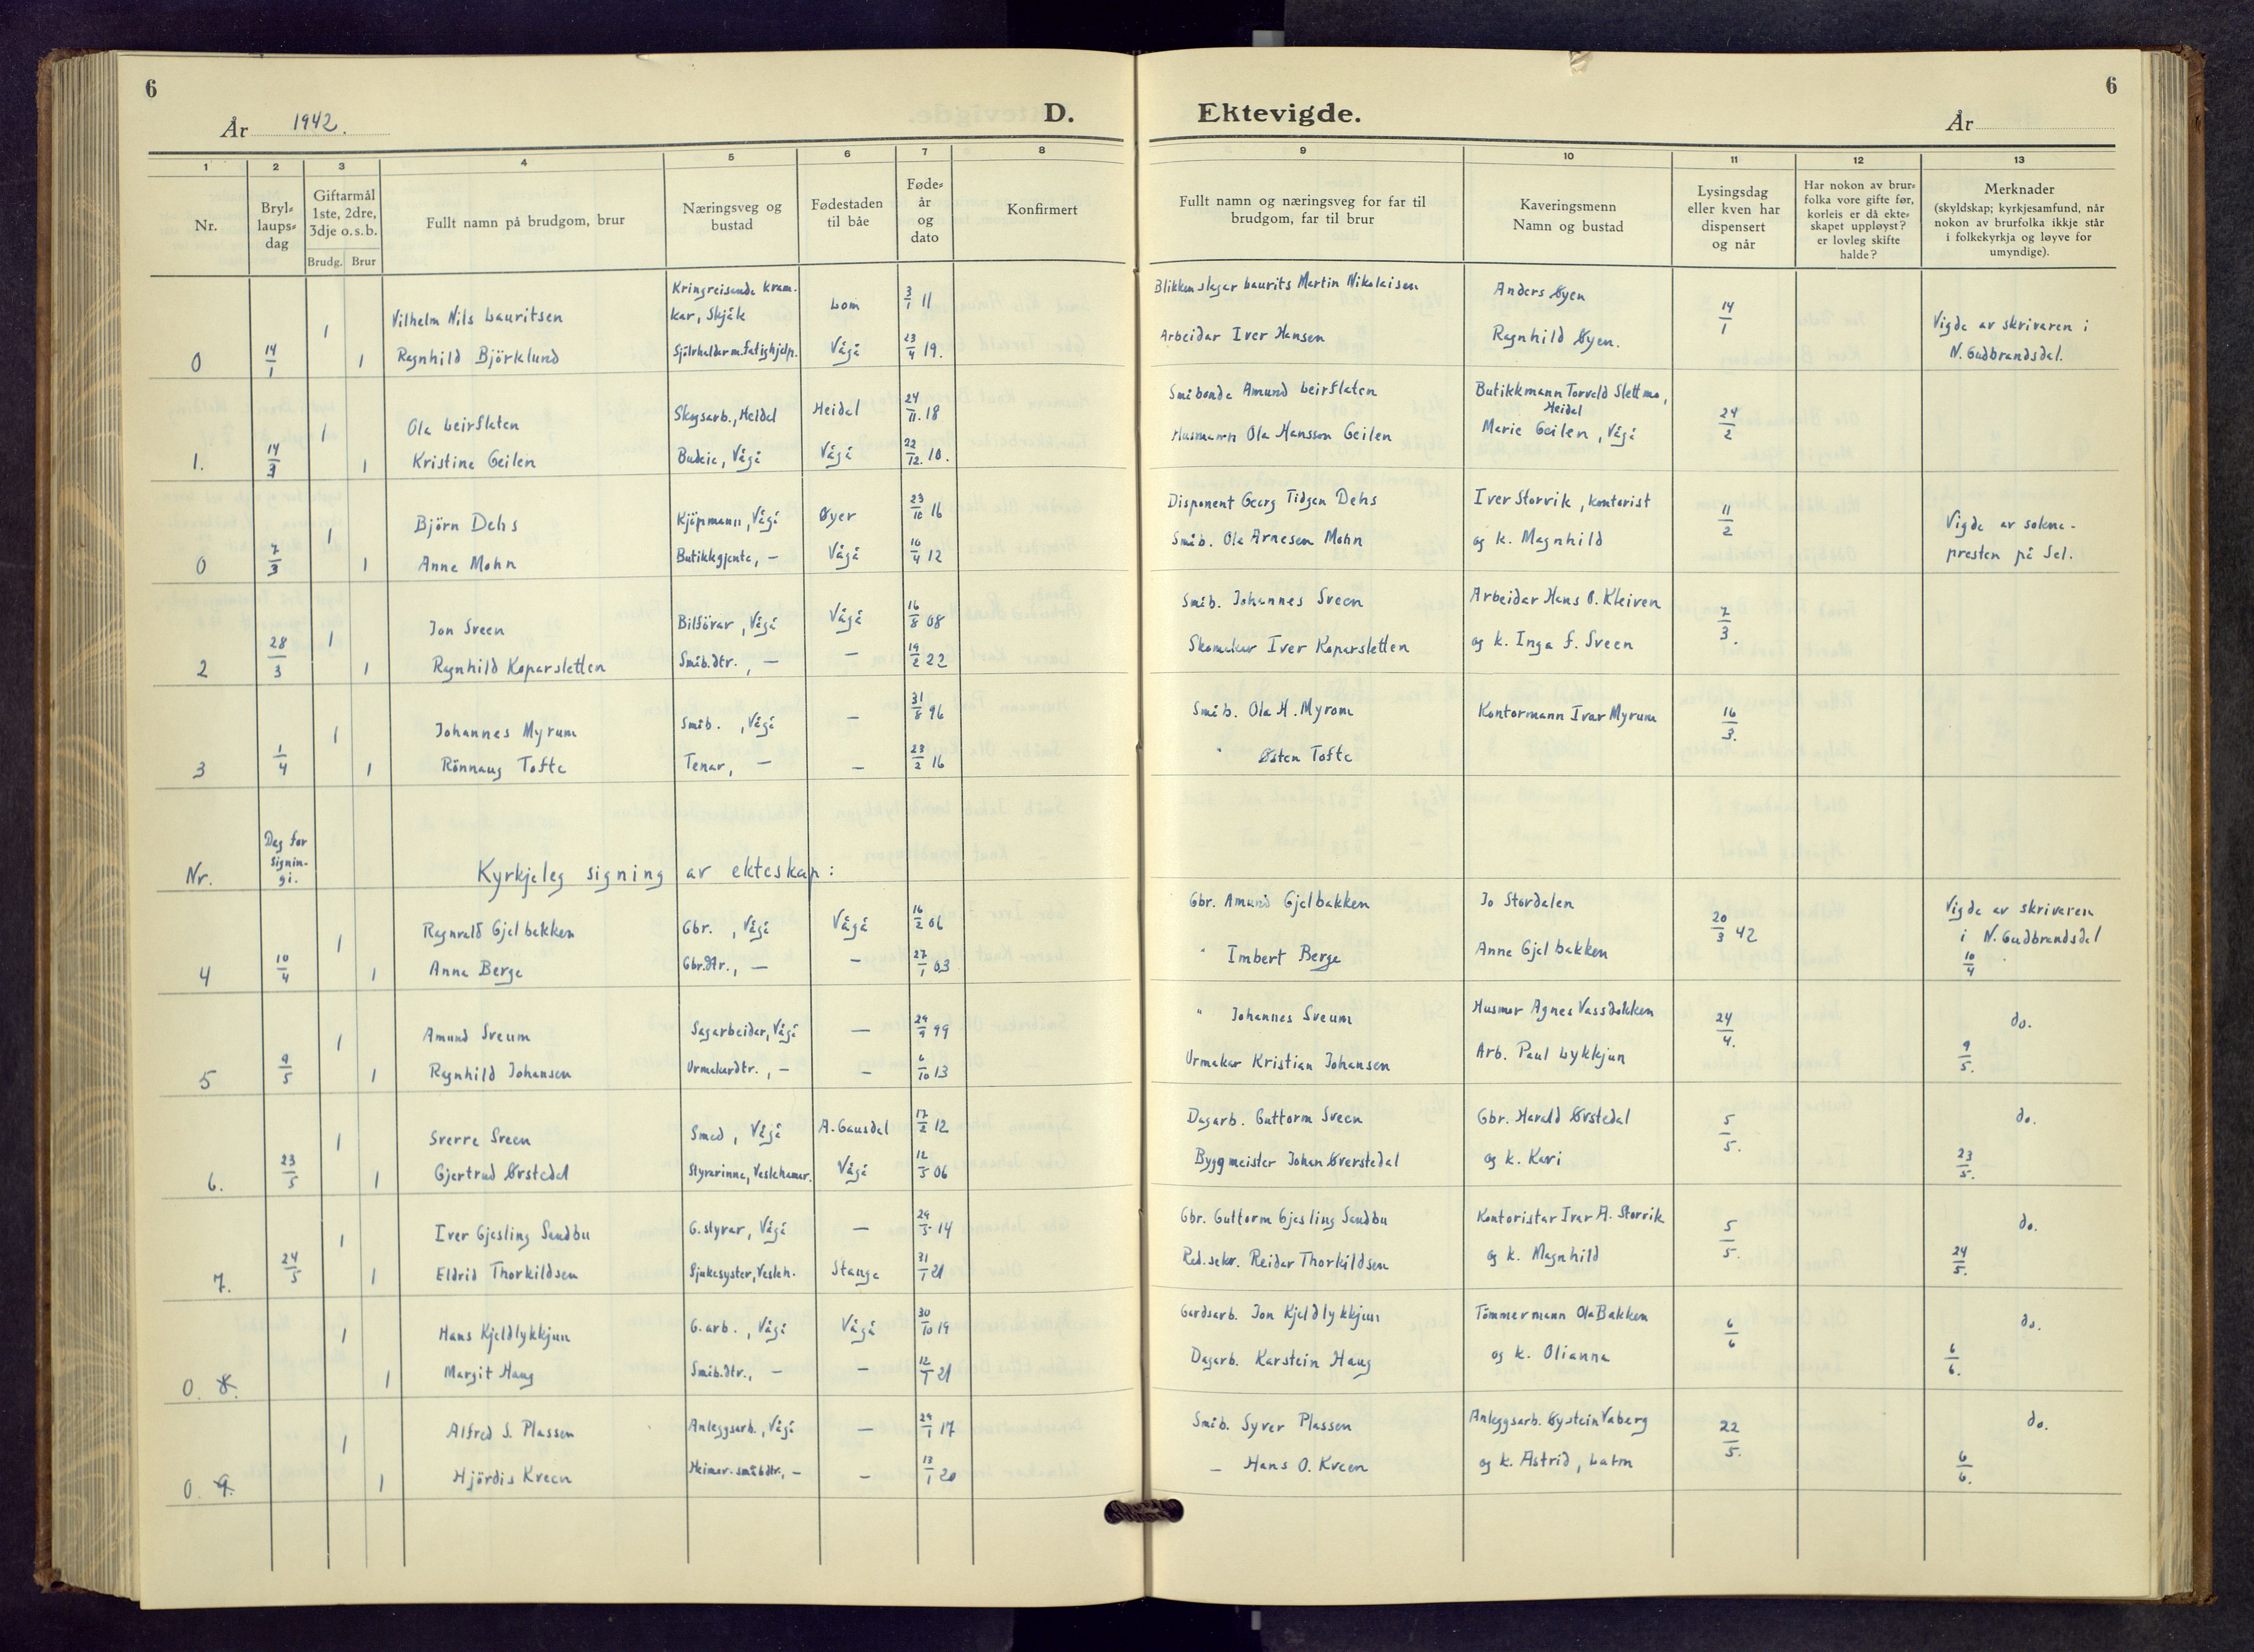 6
År 1942.
D.
Ektevigde.
År
6
1 2 3 4 5 6 7 8 9 10 11 12 13
Nr.
Bryl-
laups-
dag
Giftarmål
1ste, 2dre,
3dje o.s.b.
Brudg. Brur
Fullt namn på brudgom, brur
Næringsveg og
bustad
Fødestaden
til båe
Føde-
år
og
dato
Konfirmert
Fullt namn og næringsveg for far til
brudgom, far til brur
Kaveringsmenn
Namn og bustad
Lysingsdag
eller kven har
dispensert
og når
Har nokon av brur-
folka vore gifte før,
korleis er då ekte-
skapet uppløyst?
er lovleg skifte
halde?
Merknader
(skyldskap; kyrkjesamfund, når
nokon av brurfolka ikkje står
i folkekyrkja og løyve for
umyndige).
1 Vilhelm Nils Lauritsen Kringreisande kram-
kar, Skjåk Lom 3/1 11 Blikkenslagar Laurits Martin Nikolaisen Anders Øyen 14/1 Vigde av skrivaren i
0 14/1 1 Ragnhild Björklund Sjølvhaldar m. fatighjelp. Vågå 23/4 19. Arbeidar Iver Hansen Ragnhild Øyen. N. Gudbrandsdal.
1 Ola Leirflaten Skogsarb., Heidal Heidal 24/11. 18 Småbonde Amund Leirflaten Butikkmann Torvald Slettmo,
Heidal 24/2
1. 14/3 1 Kristine Geilen Budeie, Vågå Vågå 22/12. 10. Husmann Ola Hansson Geilen Marie Geilen, Vågå
1 Björn Dehs Kjöpmann, Vågå Øyer 23/10 16 Disponent Georg Tidgen Dehs Iver Storvik, kontorist 11/2 Vigde av sokne-
0 7/3 1 Anne Mohn Butikkgjente, — Vågå 16/4 12 Småb. Ola Arnesen Mohn og k. Magnhild presten på Sel.
1 Jon Sveen Bilförar, Vågå Vågå 16/8 08 Småb. Johannes Sveen Arbeidar Hans O. Kleiven 7/3.
2 28/3 1 Ragnhild Koparsletten Småb.dtr., — — 19/2 22 Skomakar Iver Koparsletten og k. Inga f. Sveen
1 Johannes Myrum Småb., Vågå — 31/8 96 Småb. Ola H. Myrom Kontormann Ivar Myrum 16/3.
3 1/4 1 Rönnaug Tofte Tenar, — — 23/2 16 " Østen Tofte
Nr. Dag for
signin-
gi. Kyrkjeleg signing av ekteskap:
1 Ragnvald Gjelbakken Gbr., Vågå Vågå 16/2 06 Gbr. Amund Gjelbakken Jo Stordalen 20/3 42 Vigde av skrivaren
i N. Gudbrandsdal
4 10/4 1 Anne Berge Gbr.dtr., — — 27/1 03 " Imbert Berge Anne Gjelbakken 10/4
1 Amund Sveum Sagarbeidar, Vågå — 29/9 99 " Johannes Sveum Husmor Agnes Vassdokken 24/4. do.
5 9/5 1 Ragnhild Johansen Urmakardtr., — — 6/10 13 Urmakar Kristian Johansen Arb. Paul Lykkjun 9/5.
1 Sverre Sveen Smed, Vågå A. Gausdal 17/2 12 Dagarb. Guttorm Sveen Gbr. Harald Ørstedal 5/5. do.
6. 23/5 1 Gjertrud Ørstedal Styrarinne, Veslehamar. Vågå 12/5 06 Byggmeister Johan Øverstedal og k. Kari 23/5.
1 Iver Gjesling Sandbu G.styrar, Vågå — 29/5 14 Gbr. Guttorm Gjesling Sandbu Kontoristar Ivar A. Storvik 5/5. do.
7. 24/5 1 Eldrid Thorkildsen Sjukesyster, Vesleh. Stange 31/1 21 Red.sekr. Reidar Thorkildsen og k. Magnhild 24/5.
1 Hans Kjeldlykkjun G.arb., Vågå Vågå 30/10 19 Gardsarb. Jon Kjeldlykkjun Tömmermann Ola Bakken 6/6 do.
0. 8. 1 Margit Haug Småb.dtr., — — 12/1 21 Dagarb. Karstein Haug og k. Olianna 6/6.
1 Alfred S. Plassen Anleggsarb., Vågå — 29/1 17 Småb. Syver Plassen Anleggsarb. Øystein Vaberg 22/5. do.
0. 9. 1 Hjördis Kveen Heimev. småbdtr., — — 13/1 20 — Hans O. Kveen og k. Astrid, Lalm 6/6.